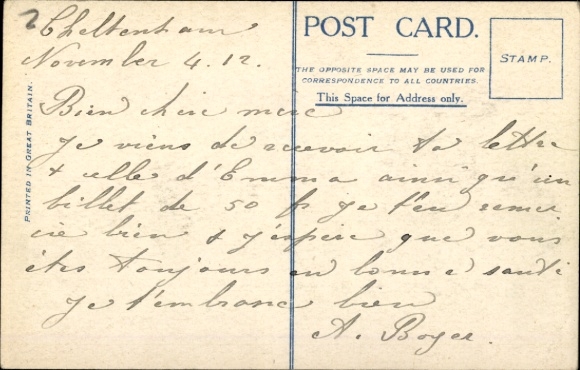 2
Cheltenham
November 4.12.
Bien chère mère
Je viens de recevoir ta lettre
& celle d'Emma ainsi qu'un
billet de 50 fr je t'en remer
cie bien & j'espère que vous
êtes toujours en bonne santé
Je t'embrasse bien
A. Boger.
POST CARD.
THE OPPOSITE SPACE MAY BE USED FOR
CORRESPONDENCE TO ALL COUNTRIES.
This Space for Address only.
STAMP.
PRINTED IN GREAT BRITAIN.